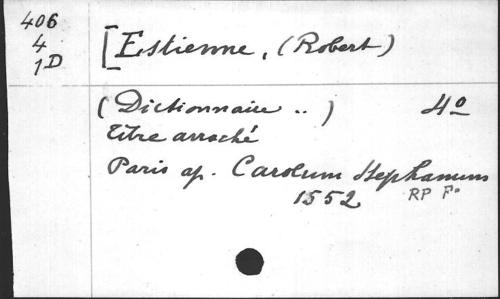 406
4
1D
[Estienne, (Robert)
(Dictionnaire ..) 4º
titre arraché
Paris ap. Carolum Stephanum
1552
RP Fº